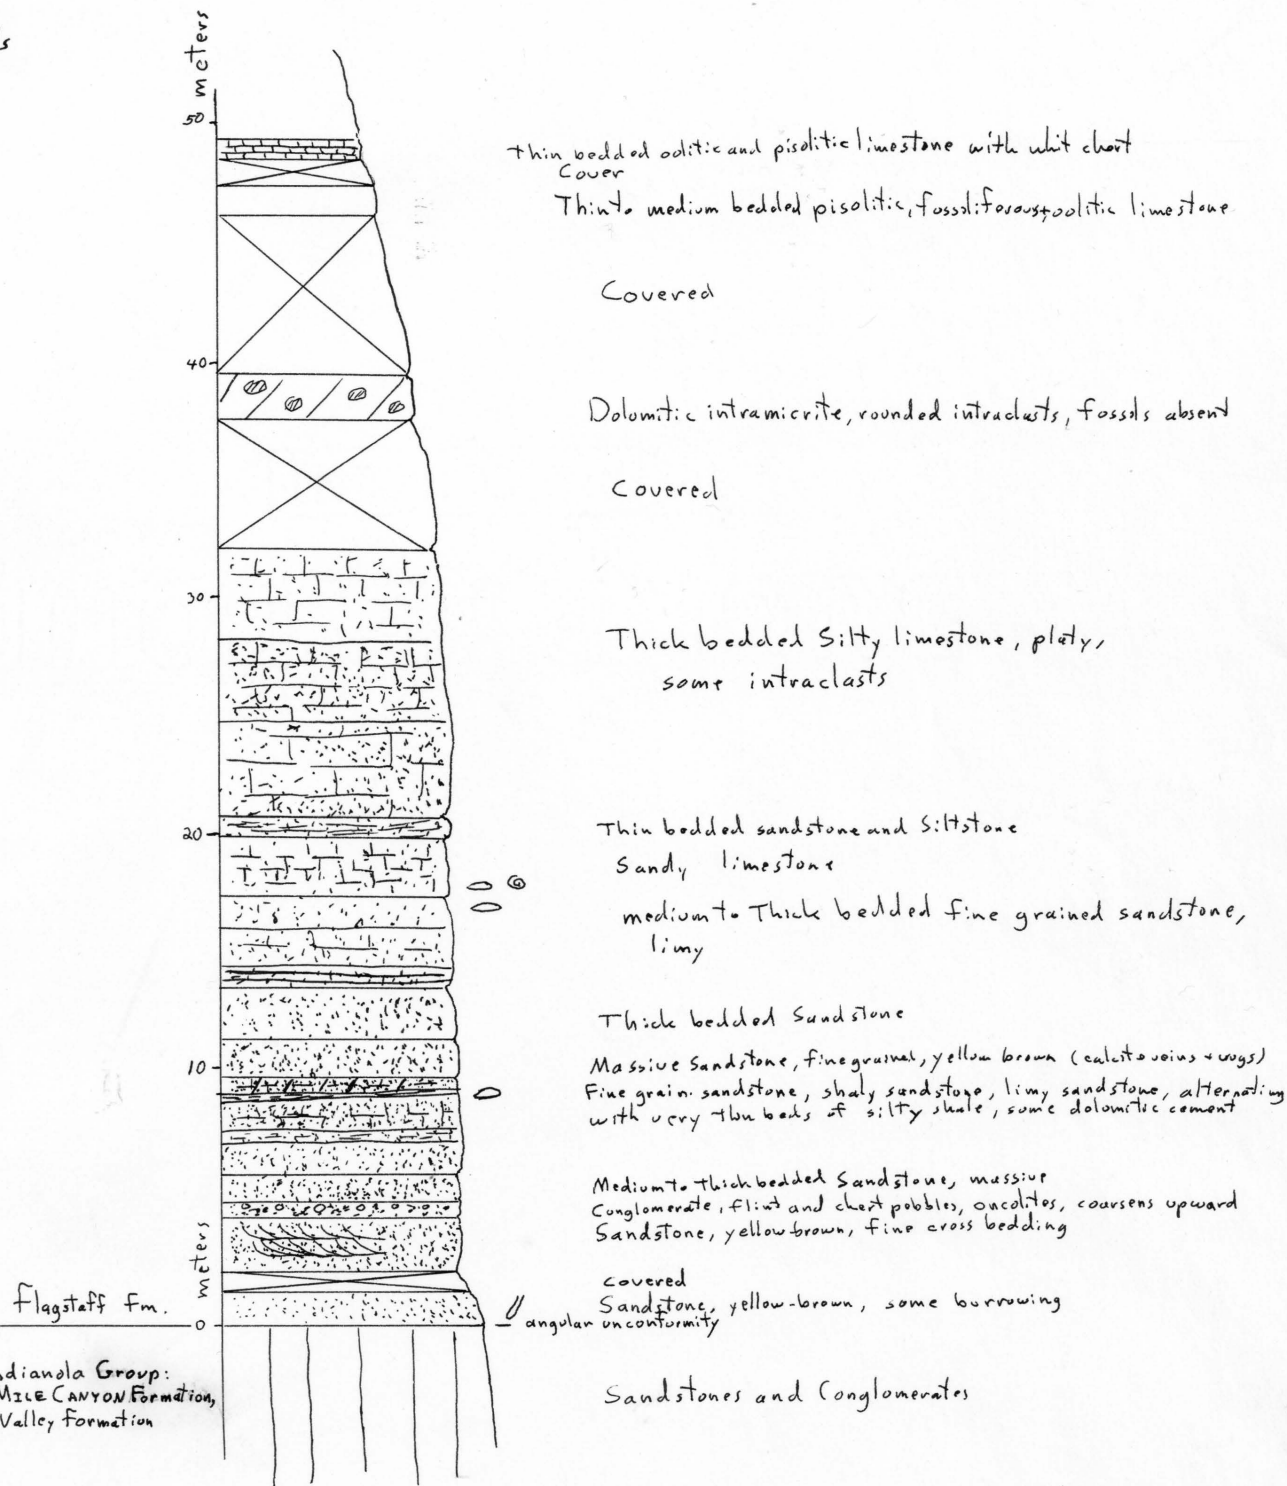 s
meters
50
thin bedded oolitic and pisolitic limestone with whit chert
Cover
Thin to medium bedded pisolitic, fossliferous + oolitic limestone
Covered
40
Dolomitic intramicrite, rounded intraclasts, fossils absent
Covered
30
Thick bedded Silty limestone, platy,
some intraclasts
20
Thin bedded sandstone and Siltstone
Sandy limestone
medium to Thick bedded fine grained sandstone,
limy
Thick bedded Sandstone
10
Massive Sandstone, fine grained, yellow brown (calcite veins + vugs)
Fine grain. sandstone, shaly sandstone, limy sandstone, alternating
with very thin beds of silty shale, some dolomitic cement
Medium to thick bedded Sandstone, massive
Conglomerate, flint and chert pebbles, oncolites, coarsens upward
Sandstone, yellow brown, fine cross bedding
meters
covered
Flagstaff Fm.
Sandstone, yellow-brown, some burrowing
0
angular unconformity
dianola Group:
MILE CANYON Formation,
Valley Formation
Sandstones and Conglomerates